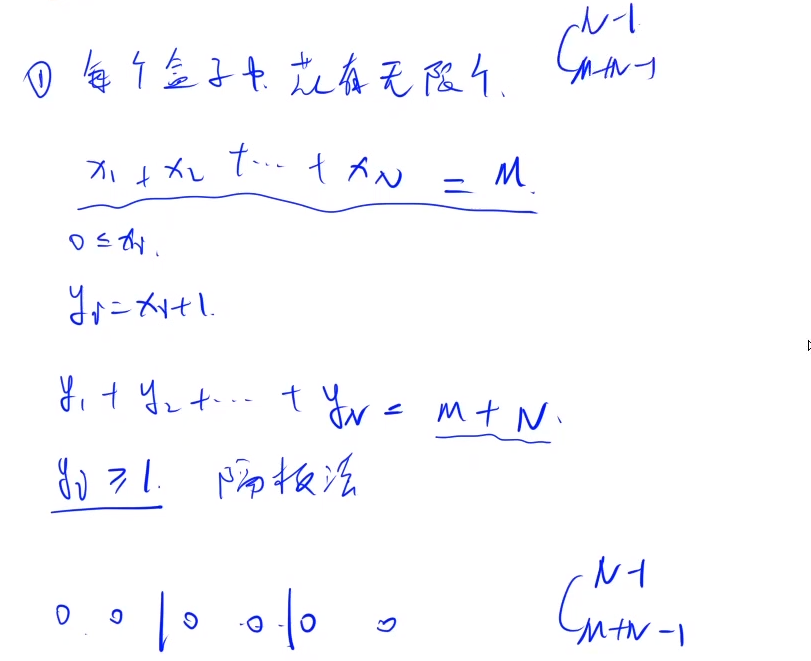 ① 每个盒子中.花有无限个. C_{M+N-1}^{N-1}
x₁ + x₂ + ··· + x_N = M.
0 ≤ xᵢ.
yᵢ = xᵢ+1.
y₁ + y₂ + ··· + y_N = M + N.
yᵢ ≥ 1. 隔板法
0 0 | 0 0 | 0 0 C_{M+N-1}^{N-1}